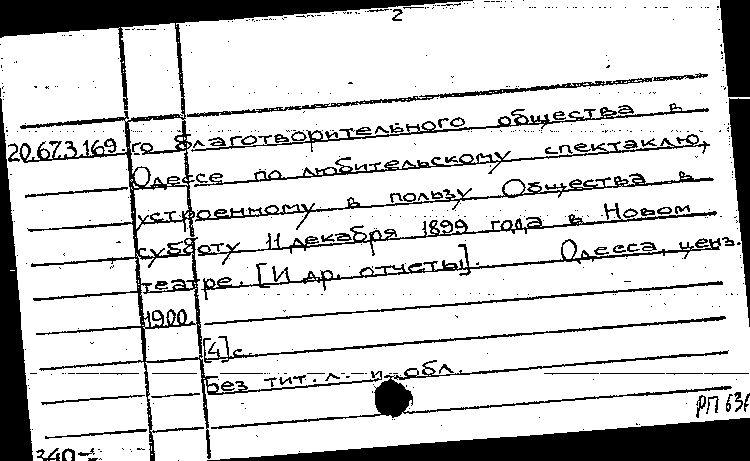 2
20.673.169. го благотворительного общества в
Одессе по любительскому спектаклю,
устроенному в пользу Общества в
субботу 11 декабря 1899 года в Новом
театре. [И др. отчеты]. Одесса, ценз.
1900.
[4]с.
Без тит. л. и обл.
РП 63
340-